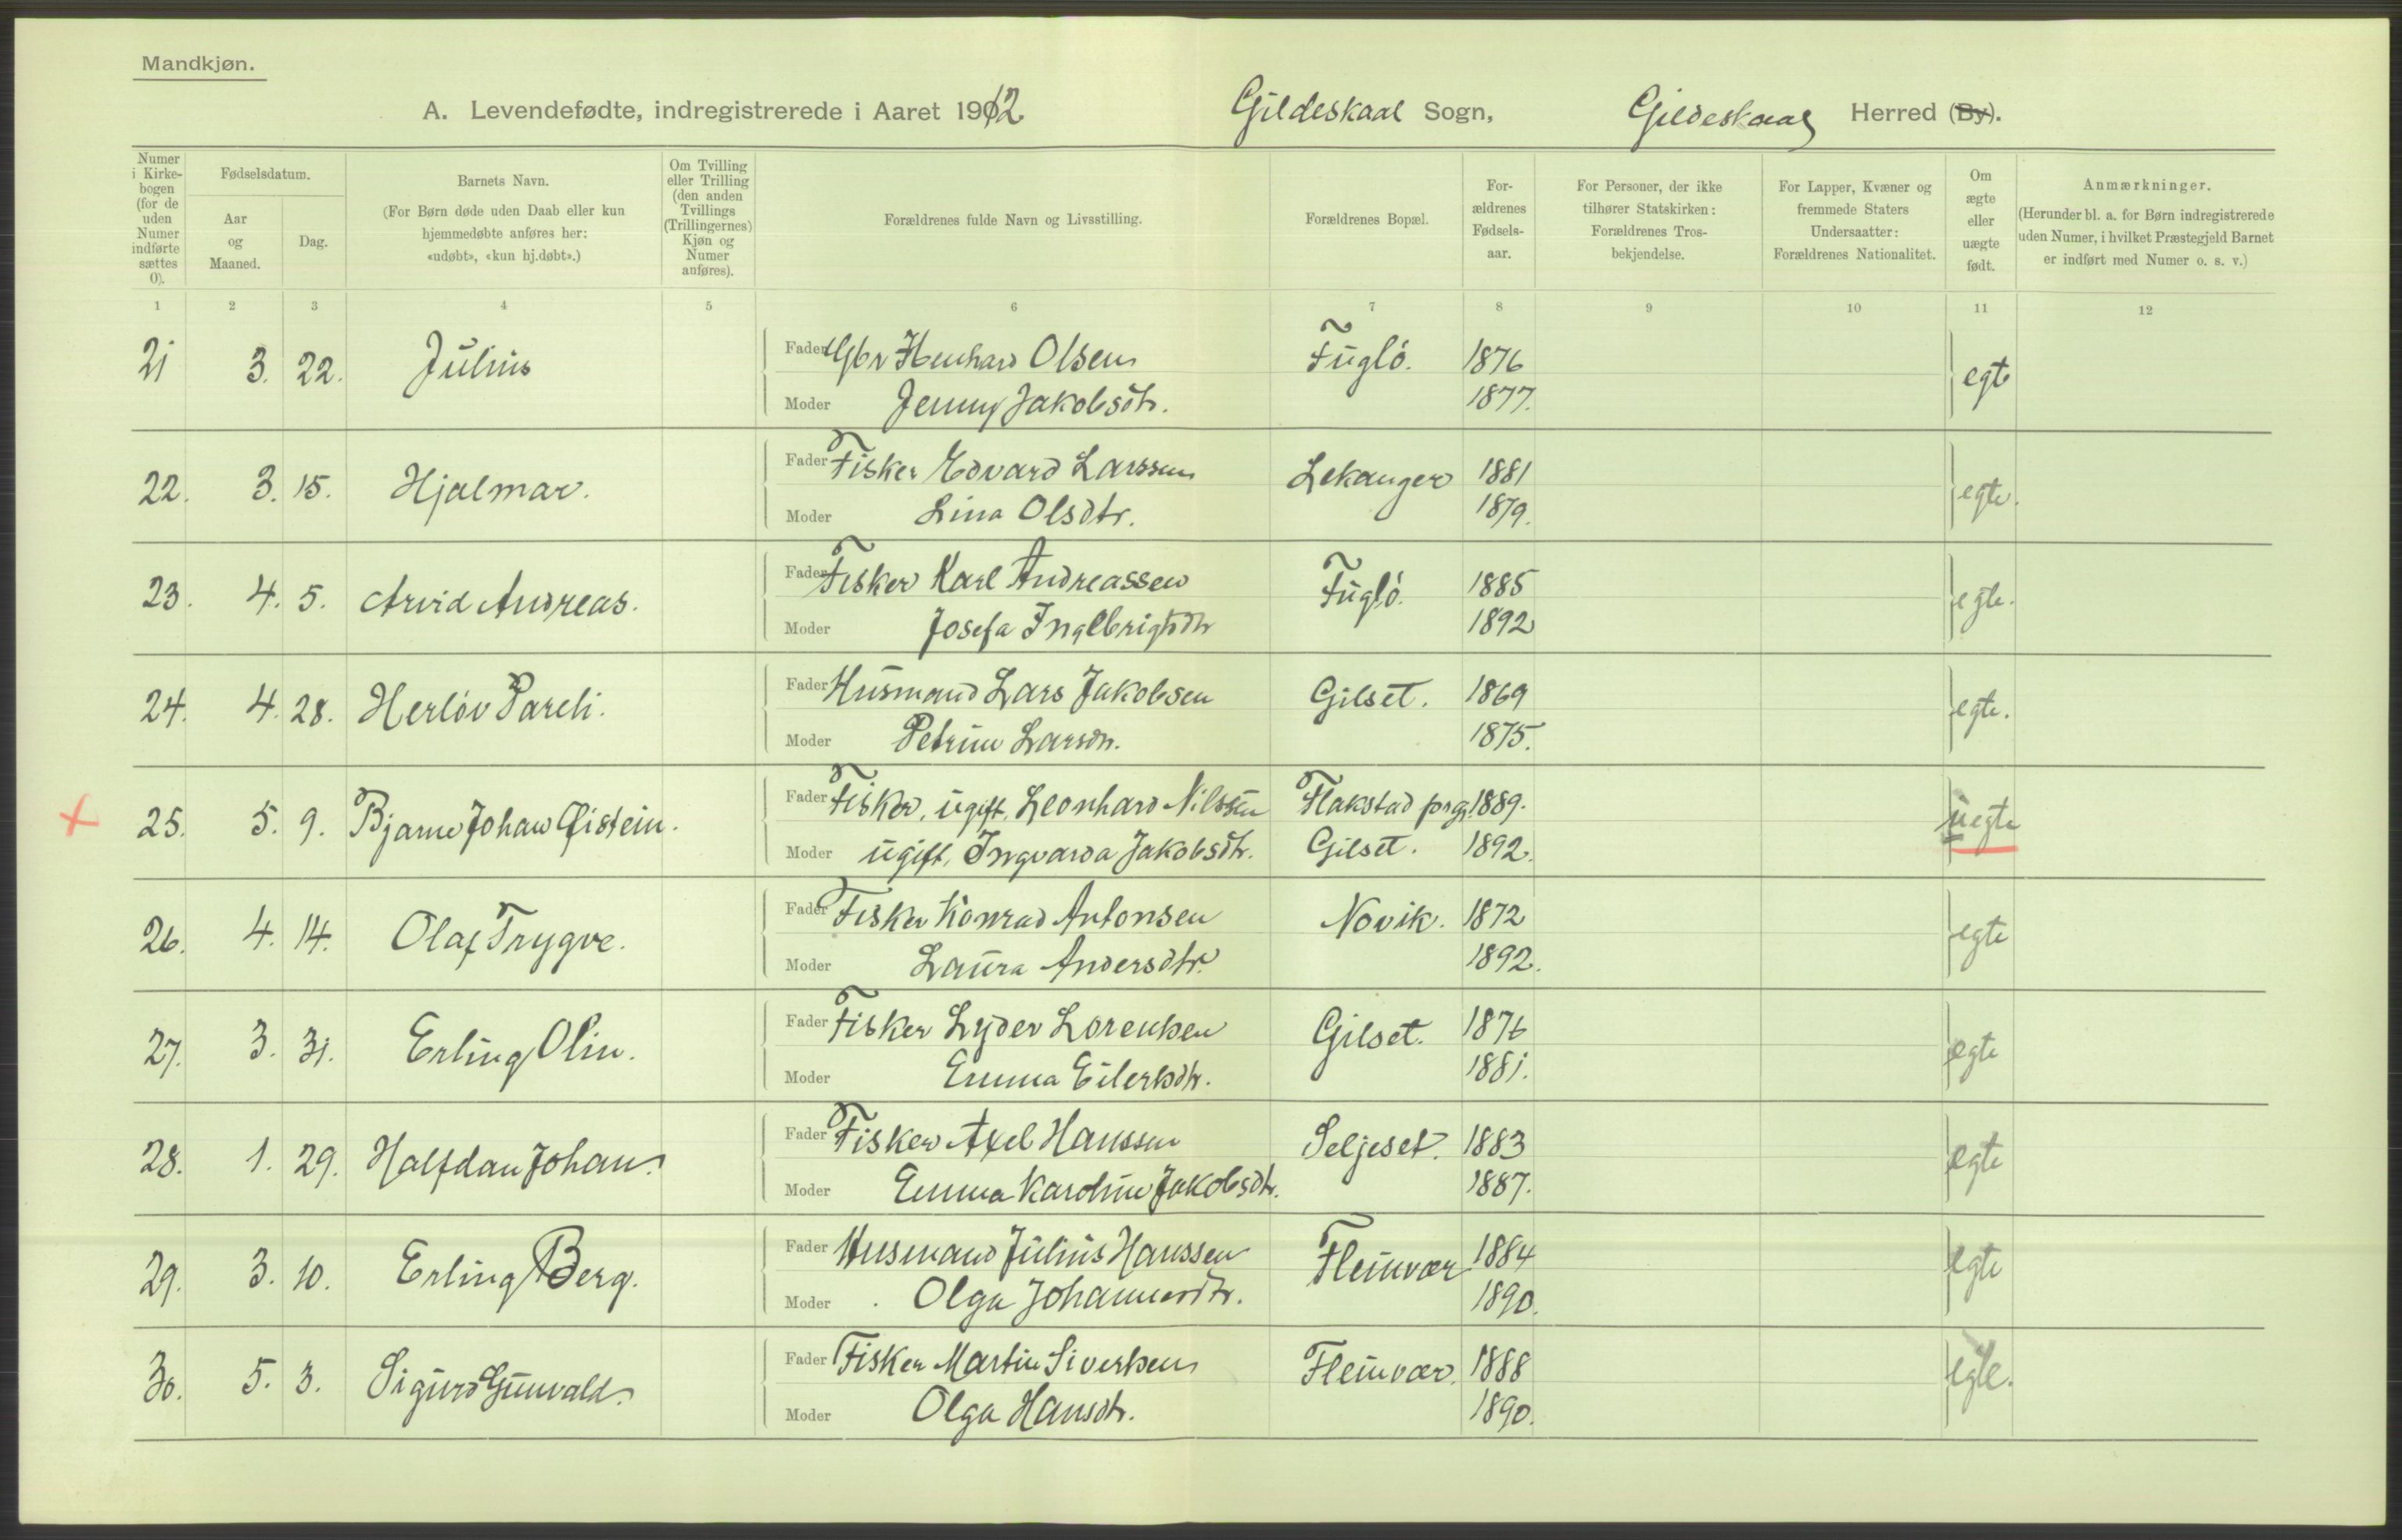 Mandkjøn.
A. Levendefødte, indregistrerede i Aaret 1912 Gildeskaal Sogn, Gildeskaal Herred (By).
Numer i Kirkebogen (for de uden Numer indførte sættes 0).
Fødselsdatum.
Aar og Maaned.
Dag.
Barnets Navn.
(For Børn døde uden Daab eller kun hjemmedøbte anføres her: «udøbt», «kun hj.døbt».)
Om Tvilling eller Trilling (den anden Tvillings (Trillingernes) Kjøn og Numer anføres).
Forældrenes fulde Navn og Livsstilling.
Forældrenes Bopæl.
Forældrenes Fødselsaar.
For Personer, der ikke tilhører Statskirken: Forældrenes Trosbekjendelse.
For Lapper, Kvæner og fremmede Staters Undersaatter: Forældrenes Nationalitet.
Om ægte eller uægte født.
Anmærkninger.
(Herunder bl. a. for Børn indregistrerede uden Numer, i hvilket Præstegjeld Barnet er indført med Numer o. s. v.)
1 2 3 4 5 6 7 8 9 10 11 12
21 3. 22. Julius Fader Gbr Henhard Olsen Fuglö. 1876 egte
Moder Jenny Jakobsdtr. 1877.
22. 3. 15. Hjalmar. Fader Fisker Edvard Larssen Lekanger 1881 egte.
Moder Lina Olsdtr. 1879.
23. 4. 5. Arvid Andreas. Fader Fisker Karl Andreassen Fuglö. 1885 egte.
Moder Josefa Ingebrigtsdtr 1892
24. 4. 28. Herlöv Pareli. Fader Husmand Lars Jakobsen Gilset. 1869 egte.
Moder Petrine Larsdtr. 1875.
25. 5. 9. Bjarne Johan Øistein. Fader Fisker, ugift, Leonhard Nilssen Flakstad prgj. 1889. uegte
Moder ugift, Ingvarda Jakobsdtr. Gilset. 1892.
26. 4. 14. Olaf Trygve. Fader Fisker Konrad Antonsen Novik. 1872 egte
Moder Laura Andersdtr. 1892.
27. 3. 31. Erling Olin. Fader Fisker Lyder Lorentsen Gilset. 1876 egte
Moder Emma Eilertsdtr. 1881.
28. 1. 29. Halfdan Johan. Fader Fisker Axel Hanssen Seljeset. 1883 egte
Moder Emma Karoline Jakobsdtr. 1887.
29. 3. 10. Erling Berg. Fader Husmand Julius Hanssen Fleinvær 1884 egte
Moder Olga Johannesdtr. 1890.
30. 5. 3. Sigurd Gunvald. Fader Fisker Martin Sivertsen Fleinvær. 1888 egte.
Moder Olga Hansdtr. 1890.